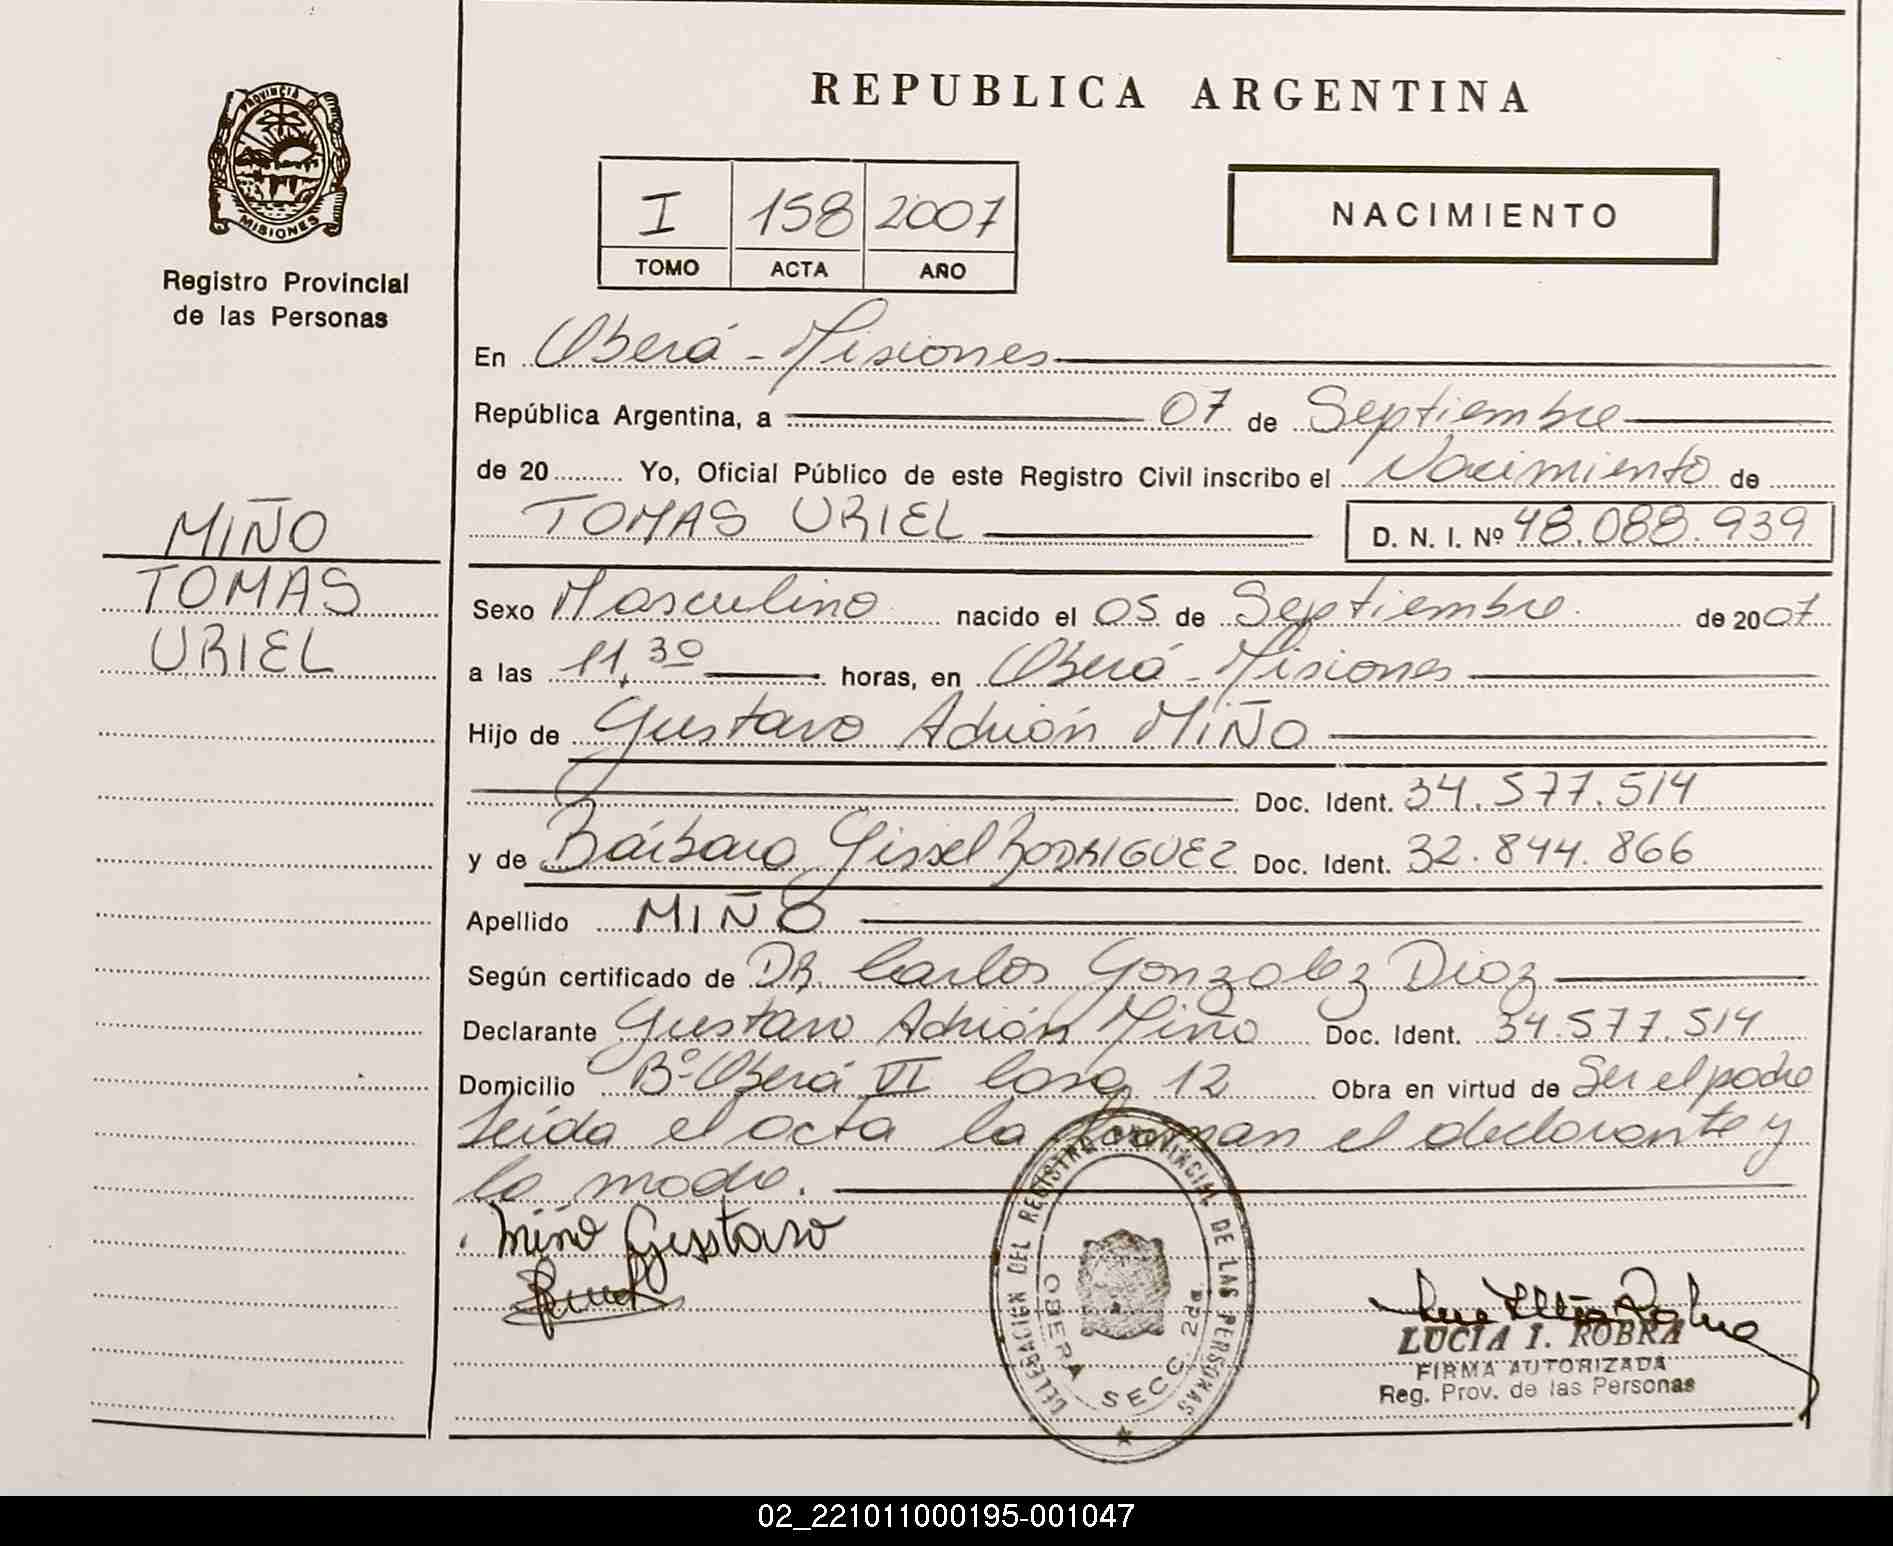 PROVINCIA DE
MISIONES
Registro Provincial
de las Personas
MIÑO
TOMAS
URIEL
REPUBLICA ARGENTINA
I 158 2007
TOMO ACTA AÑO
NACIMIENTO
En Oberá - Misiones
República Argentina, a 07 de Septiembre
de 20 Yo, Oficial Público de este Registro Civil inscribo el Nacimiento de
TOMAS URIEL D. N. I. Nº 48.088.939
Sexo Masculino nacido el 05 de Septiembre. de 2007
a las 11,30 horas, en Oberá - Misiones
Hijo de Gustavo Adrián MIÑO
Doc. Ident. 34.577.514
y de Bárbara Gissel RODRIGUEZ Doc. Ident. 32.844.866
Apellido MIÑO
Según certificado de DR. Carlos Gonzalez Diaz
Declarante Gustavo Adrián Miño Doc. Ident. 34.577.514
Domicilio Bº Oberá VI Casa 12 Obra en virtud de Ser el padre
Leída el acta la firman el declarante y
la madre.
Miño Gustavo
DELEGACION DEL REGISTRO PROVINCIAL DE LAS PERSONAS
OBERA SECC. 2da.
LUCIA I. ROBRA
FIRMA AUTORIZADA
Reg. Prov. de las Personas
02_221011000195-001047